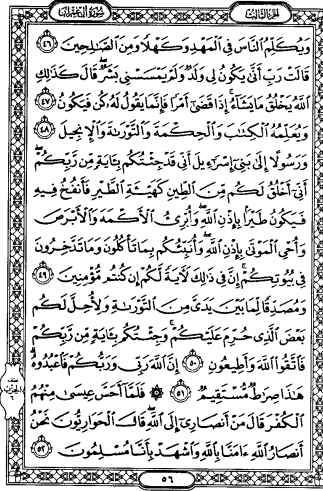 سورة آل عمران
الجزء الثالث
وَيُكَلِّمُ ٱلنَّاسَ فِى ٱلْمَهْدِ وَكَهْلًا وَمِنَ ٱلصَّٰلِحِينَ ٤٦
قَالَتْ رَبِّ أَنَّىٰ يَكُونُ لِى وَلَدٌ وَلَمْ يَمْسَسْنِى بَشَرٌ ۖ قَالَ كَذَٰلِكِ
ٱللَّهُ يَخْلُقُ مَا يَشَآءُ ۚ إِذَا قَضَىٰٓ أَمْرًا فَإِنَّمَا يَقُولُ لَهُۥ كُن فَيَكُونُ ٤٧
وَيُعَلِّمُهُ ٱلْكِتَٰبَ وَٱلْحِكْمَةَ وَٱلتَّوْرَىٰةَ وَٱلْإِنجِيلَ ٤٨
وَرَسُولًا إِلَىٰ بَنِىٓ إِسْرَٰٓءِيلَ أَنِّى قَدْ جِئْتُكُم بِـَٔايَةٍ مِّن رَّبِّكُمْ ۖ
أَنِّىٓ أَخْلُقُ لَكُم مِّنَ ٱلطِّينِ كَهَيْـَٔةِ ٱلطَّيْرِ فَأَنفُخُ فِيهِ
فَيَكُونُ طَيْرًۢا بِإِذْنِ ٱللَّهِ ۖ وَأُبْرِئُ ٱلْأَكْمَهَ وَٱلْأَبْرَصَ
وَأُحْىِ ٱلْمَوْتَىٰ بِإِذْنِ ٱللَّهِ ۖ وَأُنَبِّئُكُم بِمَا تَأْكُلُونَ وَمَا تَدَّخِرُونَ
فِى بُيُوتِكُمْ ۚ إِنَّ فِى ذَٰلِكَ لَـَٔايَةً لَّكُمْ إِن كُنتُم مُّؤْمِنِينَ ٤٩
وَمُصَدِّقًا لِّمَا بَيْنَ يَدَىَّ مِنَ ٱلتَّوْرَىٰةِ وَلِأُحِلَّ لَكُم
بَعْضَ ٱلَّذِى حُرِّمَ عَلَيْكُمْ ۚ وَجِئْتُكُم بِـَٔايَةٍ مِّن رَّبِّكُمْ
فَٱتَّقُوا۟ ٱللَّهَ وَأَطِيعُونِ ٥٠ إِنَّ ٱللَّهَ رَبِّى وَرَبُّكُمْ فَٱعْبُدُوهُ ۗ
هَٰذَا صِرَٰطٌ مُّسْتَقِيمٌ ٥١ ۞ فَلَمَّآ أَحَسَّ عِيسَىٰ مِنْهُمُ
ٱلْكُفْرَ قَالَ مَنْ أَنصَارِىٓ إِلَى ٱللَّهِ ۖ قَالَ ٱلْحَوَارِيُّونَ نَحْنُ
أَنصَارُ ٱللَّهِ ءَامَنَّا بِٱللَّهِ وَٱشْهَدْ بِأَنَّا مُسْلِمُونَ ٥٢
٥٦